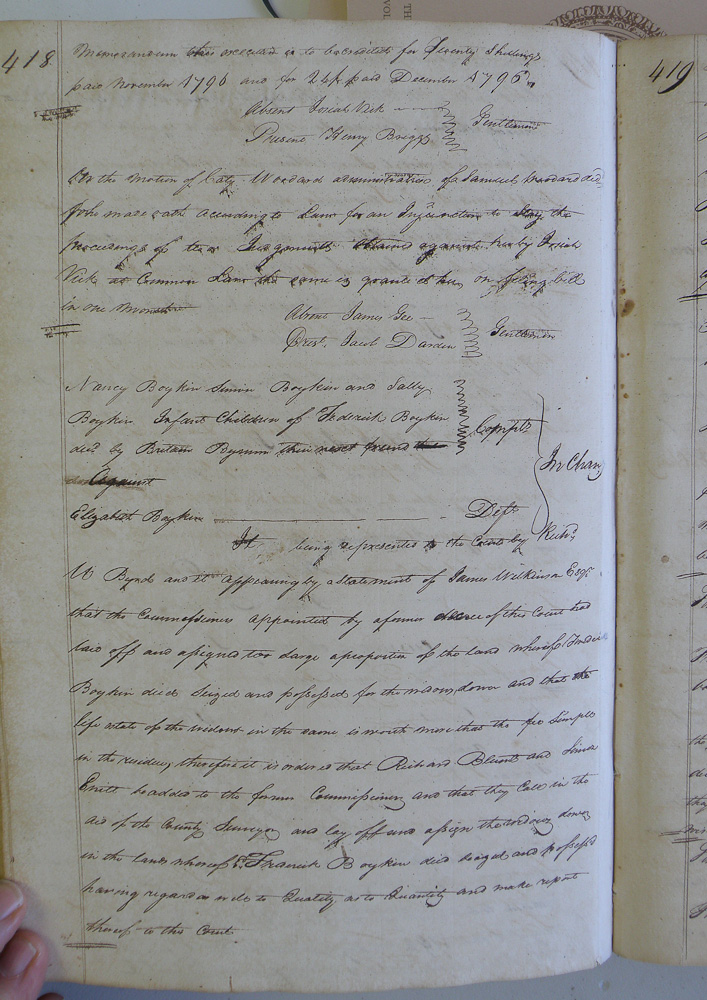 418
Memorandum this execution is to be credited for Seventy Shillings
paid November 1796 and for 24/ paid December 1796
Absent Josiah Vick
Present Henry Briggs
Gentlemen
On the motion of Caty Woodard administratrix of Samuel Woodard decd
who made oath according to Law for an Injunction to Stay the
proceedings of two Judgments obtained against her by Josiah
Vick at Common Law the same is granted her on filing bill
in one Month
Absent James Gee
Prest. Jacob Darden
Gentlemen
Nancy Boykin Simon Boykin and Sally
Boykin Infant Children of Frederick Boykin
decd by Britain Bynum their next friend
Complts
Against
In Chan
Elizabeth Boykin
Deft
It being represented to the Court by Richd
W Byrd and it appearing by a Statement of James Wilkinson Esqr
that the Commissioners appointed by a former decree of this Court had
laid off and assigned too large a proportion of the land whereof Frederick
Boykin died Seized and possessed for the widows dower and that the
life estate of the widow in the same is worth more that the fee Simple
in the residue, therefore it is ordered that Richard Blunt and
be added to the former Commissioners and that they Call in the
aid of the County Surveyor and lay off and assign the widows dower
in the lands whereof Frederick Boykin died seized and possessed
having regard as well to Quality as to Quantity and make report
thereof to this Court
419